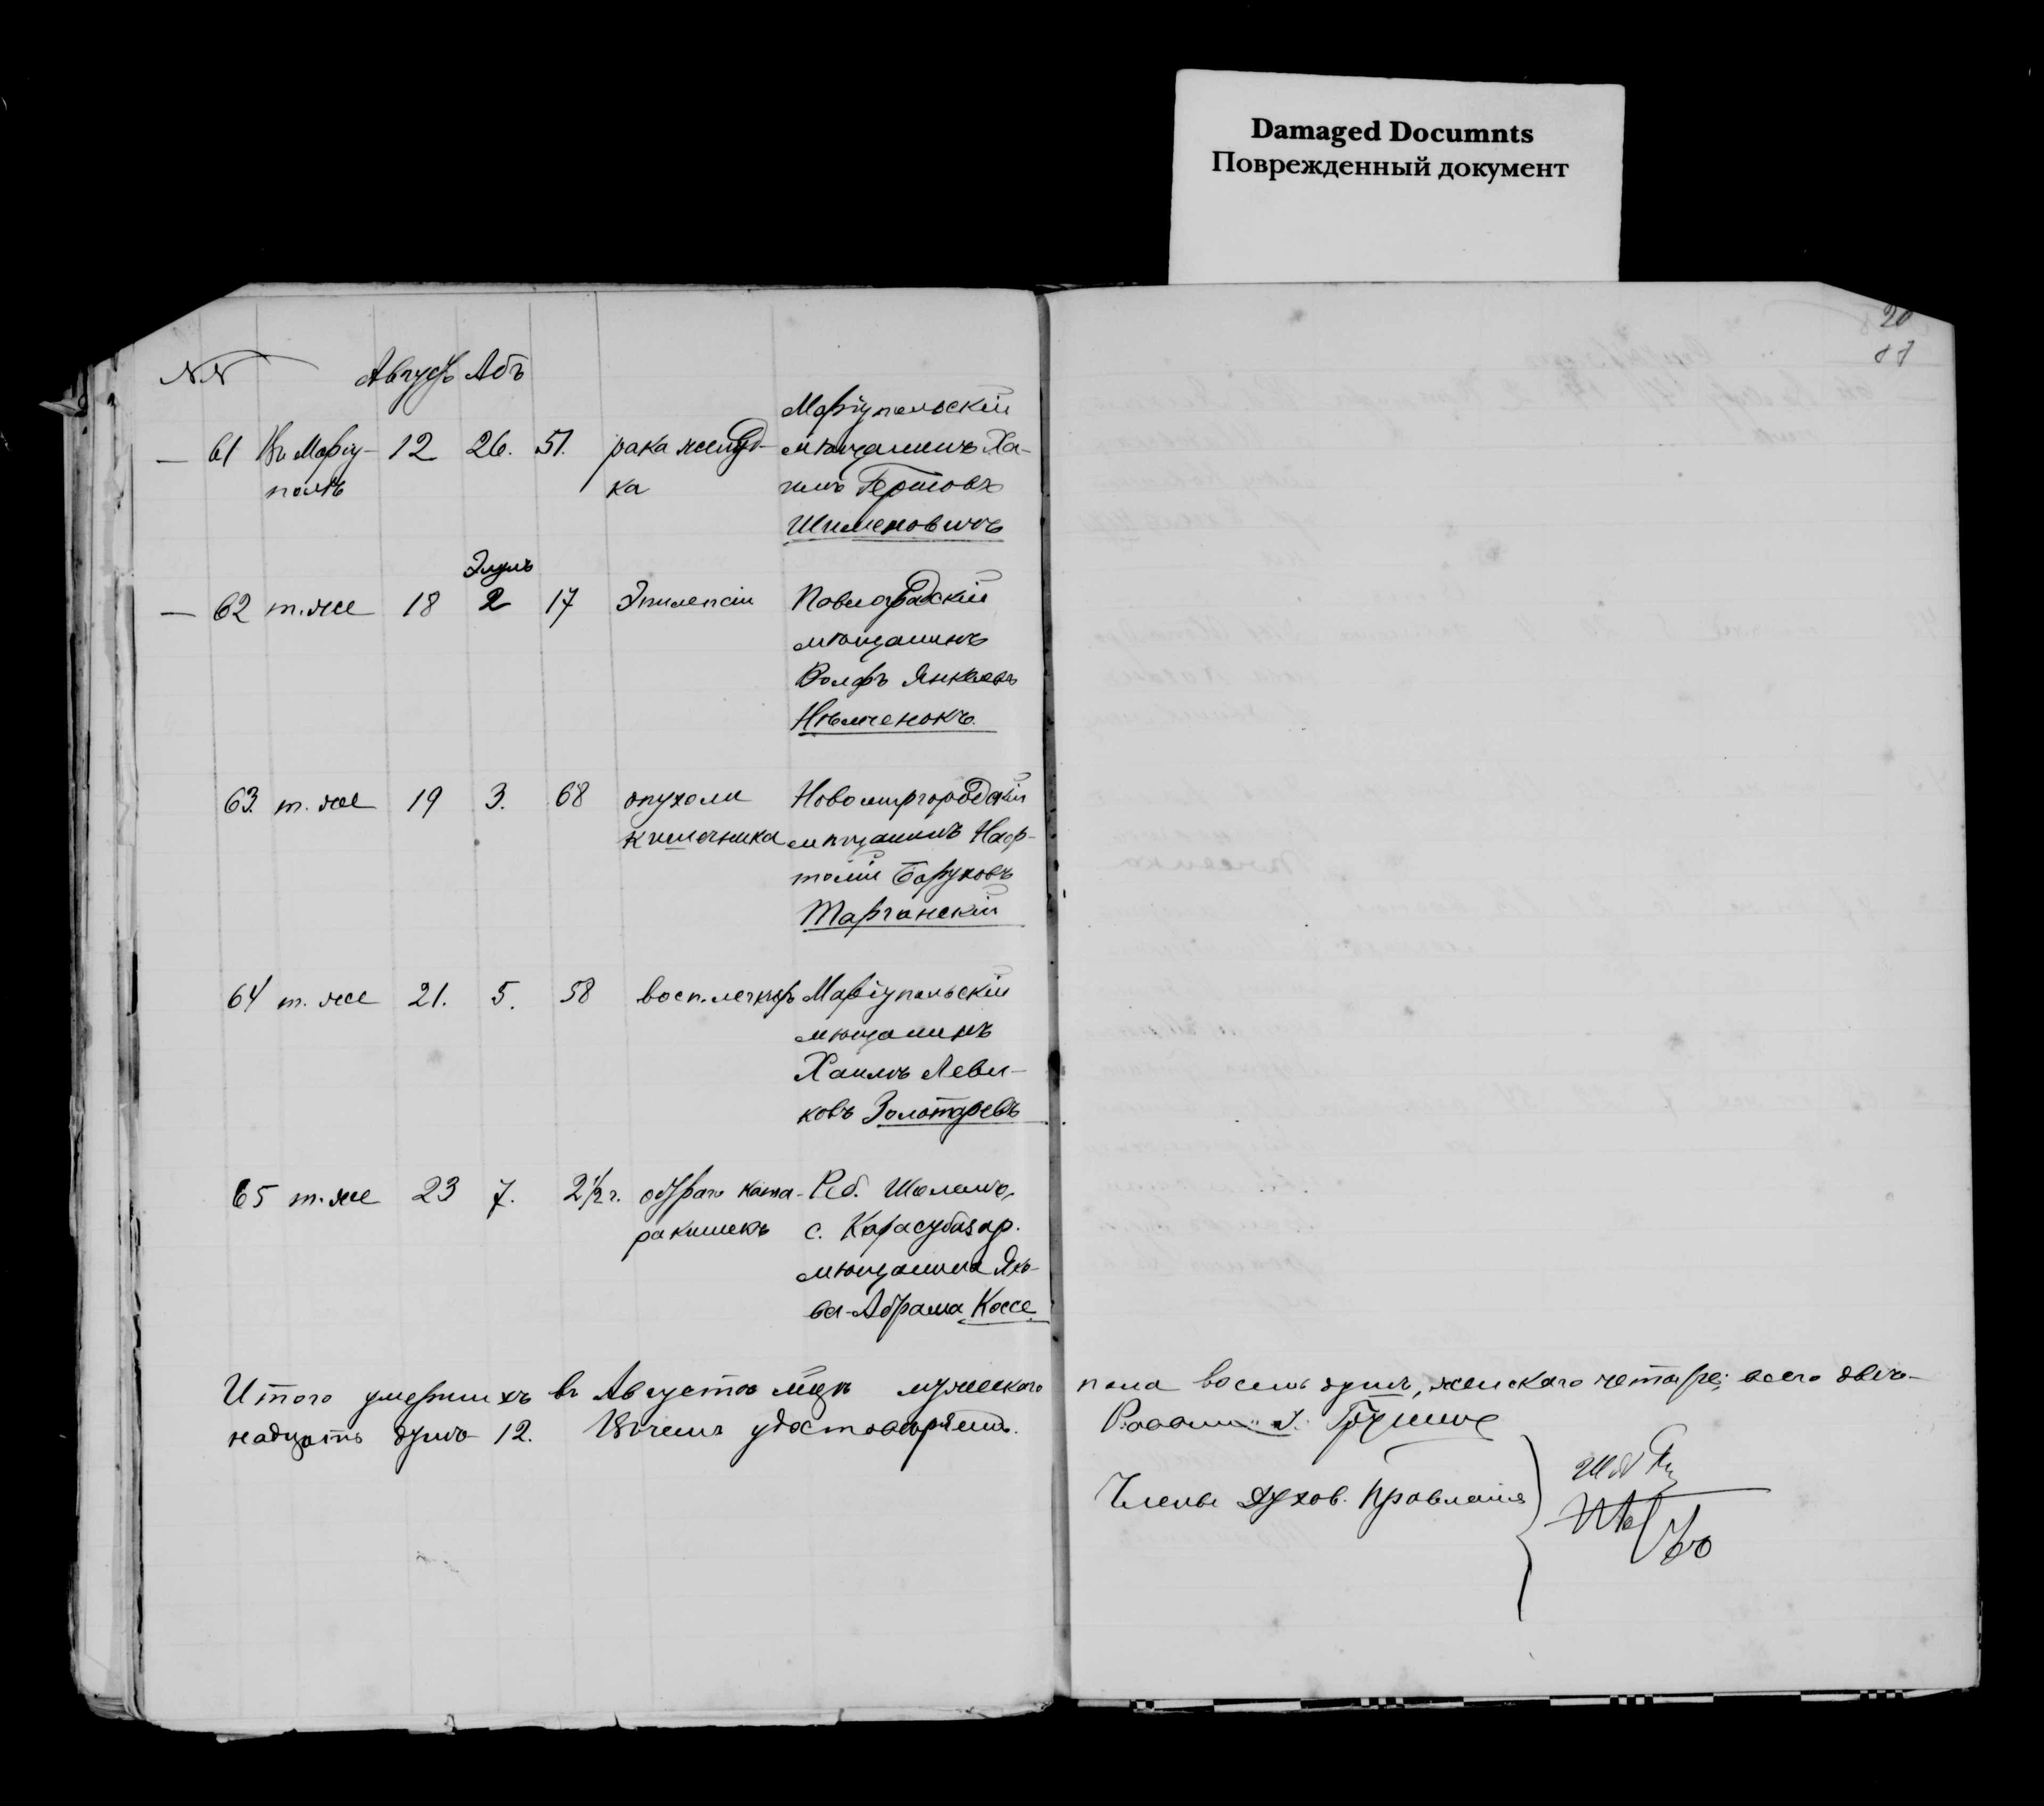 Damaged Documnts
Поврежденный документ
20
NN
Августъ Абъ
61 Въ Маріу- 12 26. 51. рака желуд- Маріупольскій
полѣ ка мѣщанинъ Ха-
имъ Гершовъ
Шименовичъ
Элулъ
62 т.же 18 2 17 Эпилепсіи Павлоградскій
мѣщанинъ
Волфъ Янкелевъ
Нѣмченокъ.
63. т. же 19 3. 68 опухоли Новомиргородскій
кишечника мѣщанинъ Наф-
толій Баруховъ
Тарганскій
64 т. же 21. 5. 58 восп. легкихъ Маріупольскій
мѣщанинъ
Хаимъ Леви-
ковъ Золотаревъ
65 т. же 23 7. 2½ г. остраго ката- Реб. Шолемъ,
ра кишекъ с. Карасубазар.
мѣщанина Яко-
ва-Абрама Коссе
Итого умершихъ въ Августѣ м-цѣ мужескаго пола восемь душъ, женскаго четыре; всего двѣ-
надцать душъ 12. Въ чемъ удостовѣряемъ.
Раввинъ
Члены Духов. Правленія